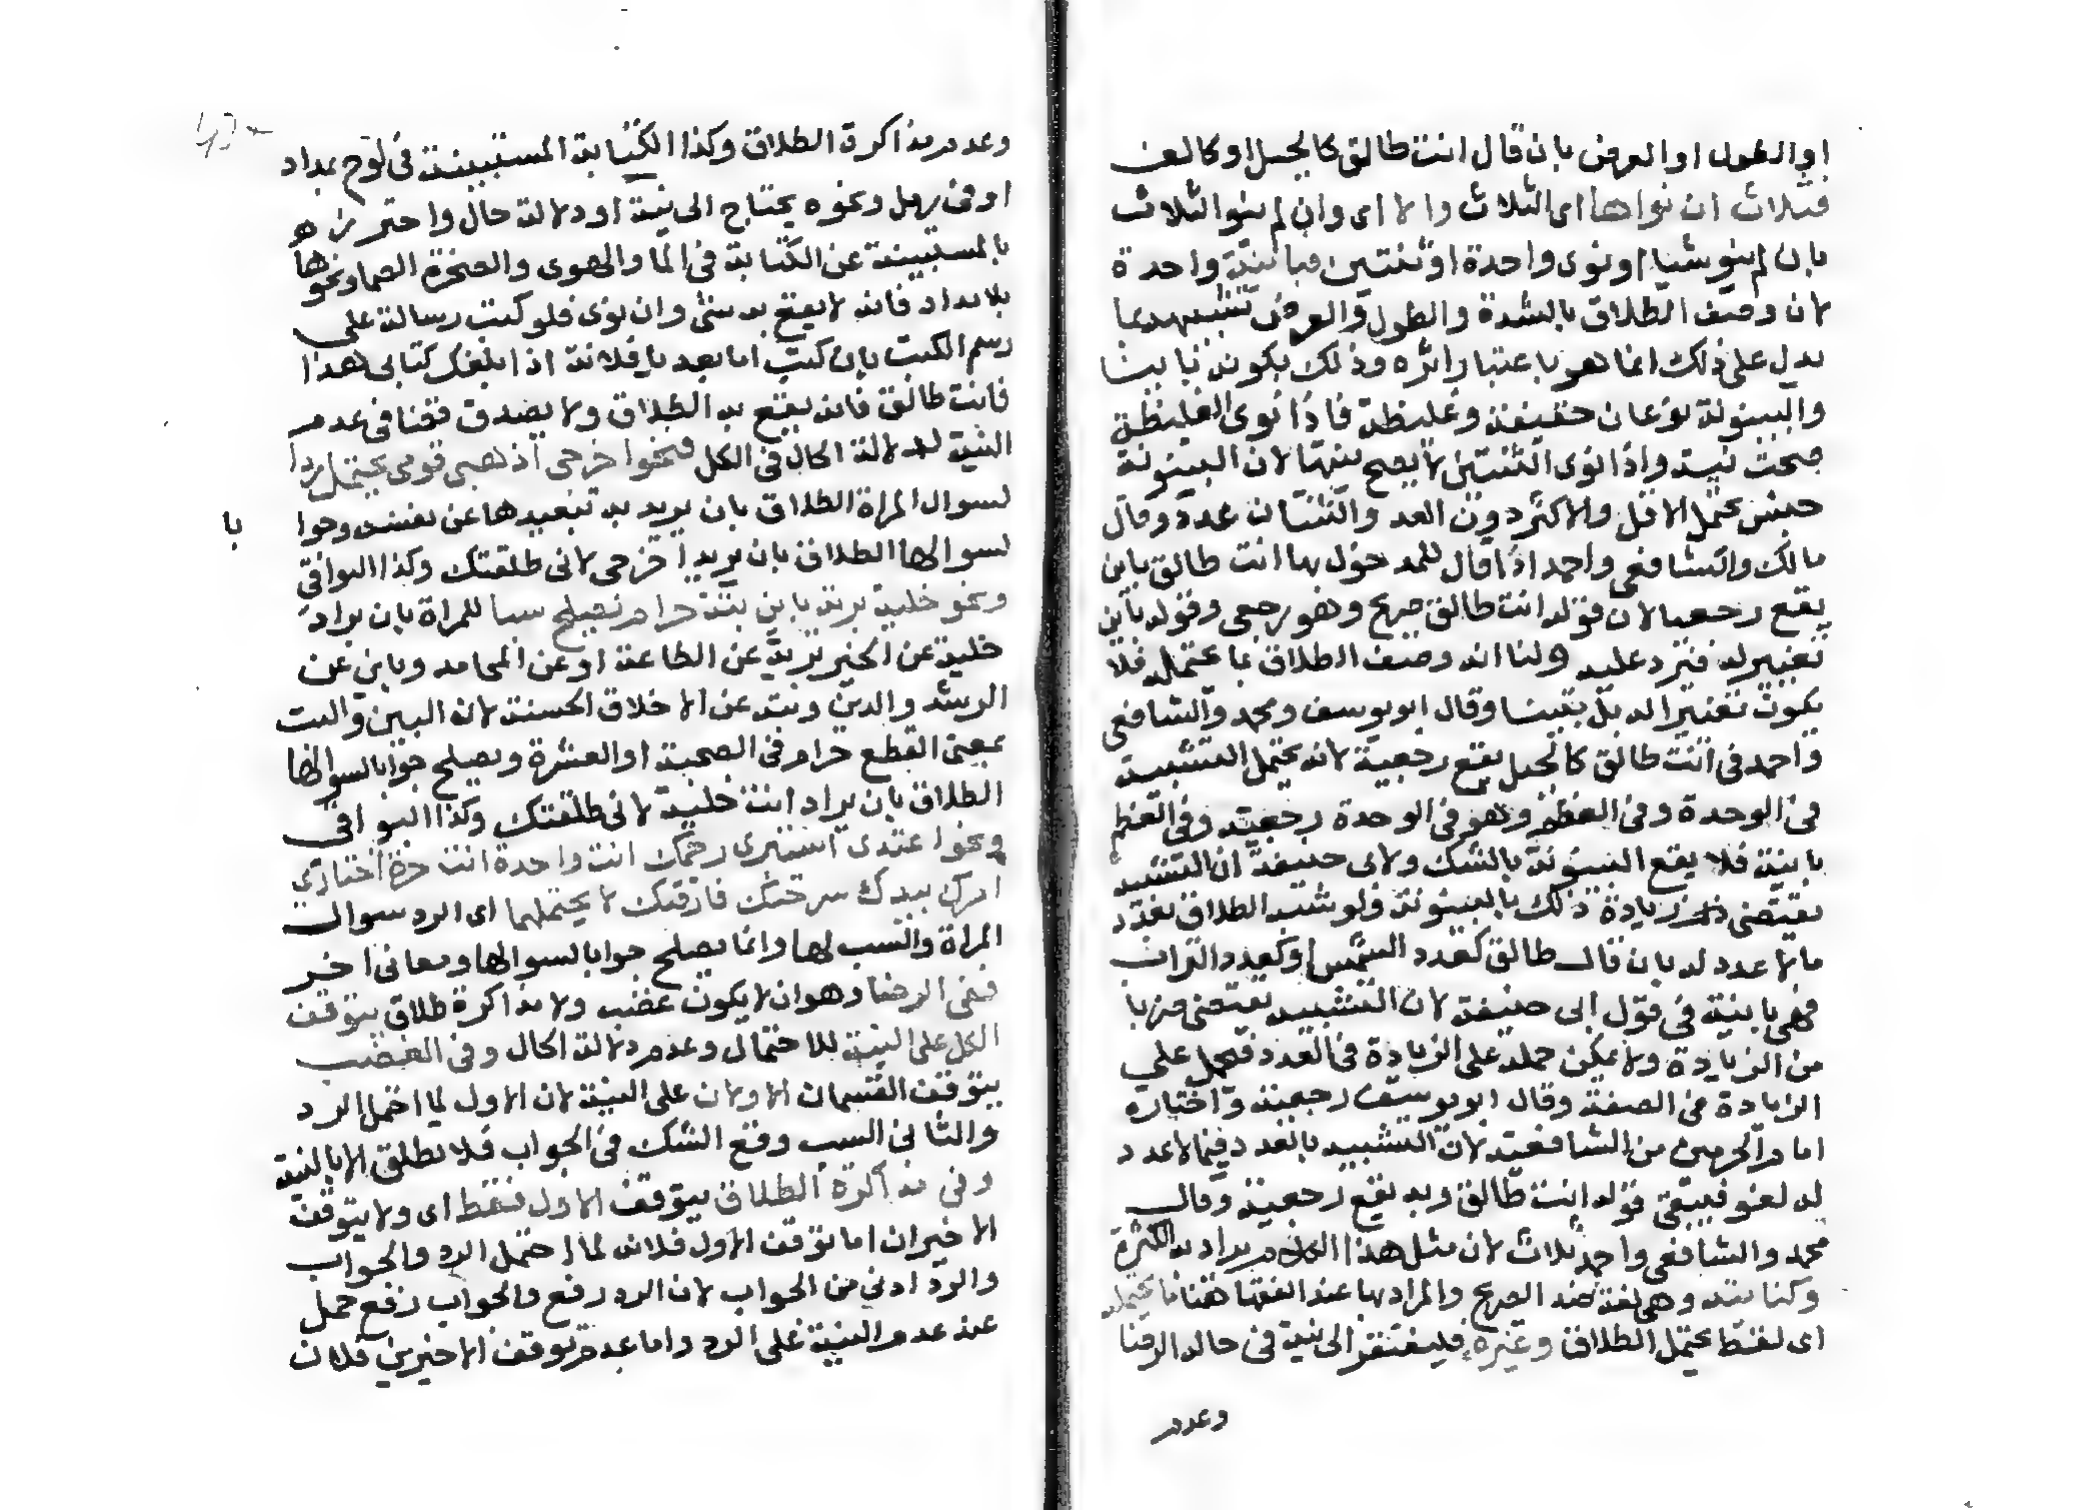 او الطول او العرض بان قال انت طالق كالجبل او كالف
فثلاث ان نواها اى الثلاث والا اى وان لم ينو الثلاث
بان لم ينو شيا او نوى واحدة او ثنتين فباينة واحدة
لان وصف الطلاق بالشدة والطول والعرض تشبيهه بما
يدل على ذلك انما هو باعتبار اثره وذلك بكونه باينا
والبينونة نوعان خفيفة وغليظة فاذا نوى الغليظة
صحت نيته واذا نوى الثنتين لا يصح نيتها لان البينونة
جنس يحتمل الاقل والاكثر دون العدد والثنتان عدد وقال
مالك والشافعى واحمد اذا قال للمدخول بها انت طالق باين
يقع رجعيا لان قوله انت طالق صريح وهو رجعى وقوله باين
تغيير له فترد عليه ولنا انه وصف الطلاق بما يحتمله فلا
يكون تغييرا له بل تعيينا وقال ابو يوسف ومحمد والشافعى
واحمد فى انت طالق كالجبل يقع رجعية لانه يحتمل التشبيه
فى الوحدة وفى العظم وهو فى الوحدة رجعية وفى العظم
باينة فلا يقع البينونة بالشك ولابى حنيفة ان التشبيه
يقتضى زيادة ذلك بالبينونة ولو شبه الطلاق بعدد
مالا عدد له بان قال طالق كعدد الشمس او كعدد التراب
فهى باينة فى قول ابى حنيفة لان التشبيه يقتضى ضربا
من الزيادة ولا يمكن حمله على الزيادة فى العدد فيحمل على
الزيادة فى الصفة وقال ابو يوسف رجعية واختاره
امام الحرمين من الشافعية لان التشبيه بالعدد فيما لا عدد
له لغو فيبقى قوله انت طالق وبه يقع رجعية وقال
محمد والشافعى واحمد ثلاث لان مثل هذا الكلام يراد به الكثرة
وكنايته وهى لغة ضد الصريح والمراد بها عند الفقها هنا ما يحتمله
اى لفظ يحتمل الطلاق وغيره فليفتقر الى نية فى حالة الرضا
وعدم
وعدم مذاكرة الطلاق وكذا الكتابة المستبينة فى لوح بمداد
او فى رمل ونحوه يحتاج الى نية او دلالة حال واحترز
بالمستبينة عن الكتابة فى الما والهوى والصخرة الصما ونحوها
بلا مداد فانه لا يقع به شئ وان نوى فلو كتب رسالة على
رسم الكتب بان كتب اما بعد يا فلانة اذا بلغك كتابى هذا
فانت طالق فانه يقع به الطلاق ولا يصدق قضا فى عدم
النية لدلالة الحال فى الكل فنحوا خرجى اذهبى قومى يحتمل ردا
لسوال المراة الطلاق بان يريد به تبعيدها عن نفسه وجوا
با
لسوالها الطلاق بان يريد اخرجى لانى طلقتك وكذا البواقى
ونحو خلية برية باين بتة حرام يصلح سبا للمراة بان يراد
خلية عن الخير برية عن الطاعة او عن المحامد وباين عن
الرشد والدين وبتة عن الاخلاق الحسنة لان البين والبت
بمعنى القطع حرام فى الصحبة او العشرة ويصلح جوابا لسوالها
الطلاق بان يراد انت خلية لانى طلقتك وكذا البواقى
ونحو اعتدى استبرى رحمك انت واحدة انت حرة اختارى
امرك بيدك سرحتك فارقتك لا يحتملهما اى الرد سوال
المراة والسب لها وانما يصلح جوابا لسوالها ومعانى اخر
ففى الرضا وهو ان لا يكون غضب ولا مذاكرة طلاق يتوقف
الكل على النية للاحتمال وعدم دلالة الحال وفى الغضب
يتوقف القسمان الاولان على النية لان الاول لما احتمل الرد
والثانى السب وقع الشك فى الجواب فلا يطلق الا بالنية
وفى مذاكرة الطلاق يتوقف الاول فقط اى ولا يتوقف
الاخيران اما توقف الاول فلانه لما احتمل الرد والجواب
والرد ادنى من الجواب لان الرد رفع والجواب رفع حمل
عند عدم النية على الرد واما عدم توقف الاخيرين فلان